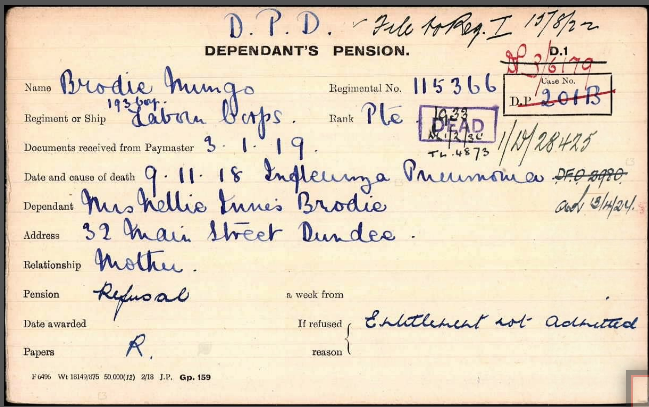 D. P. D. File to Reg. I 15/8/22
DEPENDANT'S PENSION. D.1
D 3/6179
Name Brodie Mungo Regimental No. 115366 Case No.
D.P. 201B
193 Coy.
Regiment or Ship Labour Corps. Rank Pte. DEAD
Documents received from Paymaster 3.1.19. 1/D/28425
Date and cause of death 9.11.18 Influenza Pneumonia
Dependant Mrs Nellie Innes Brodie
Address 32 Main Street Dundee.
Relationship Mother.
Pension Refusal a week from
Date awarded If refused Entitlement not Admitted
Papers R. reason
F 6496 Wt 18149/875 50,000(12) 2/18 J.P. Gp. 159